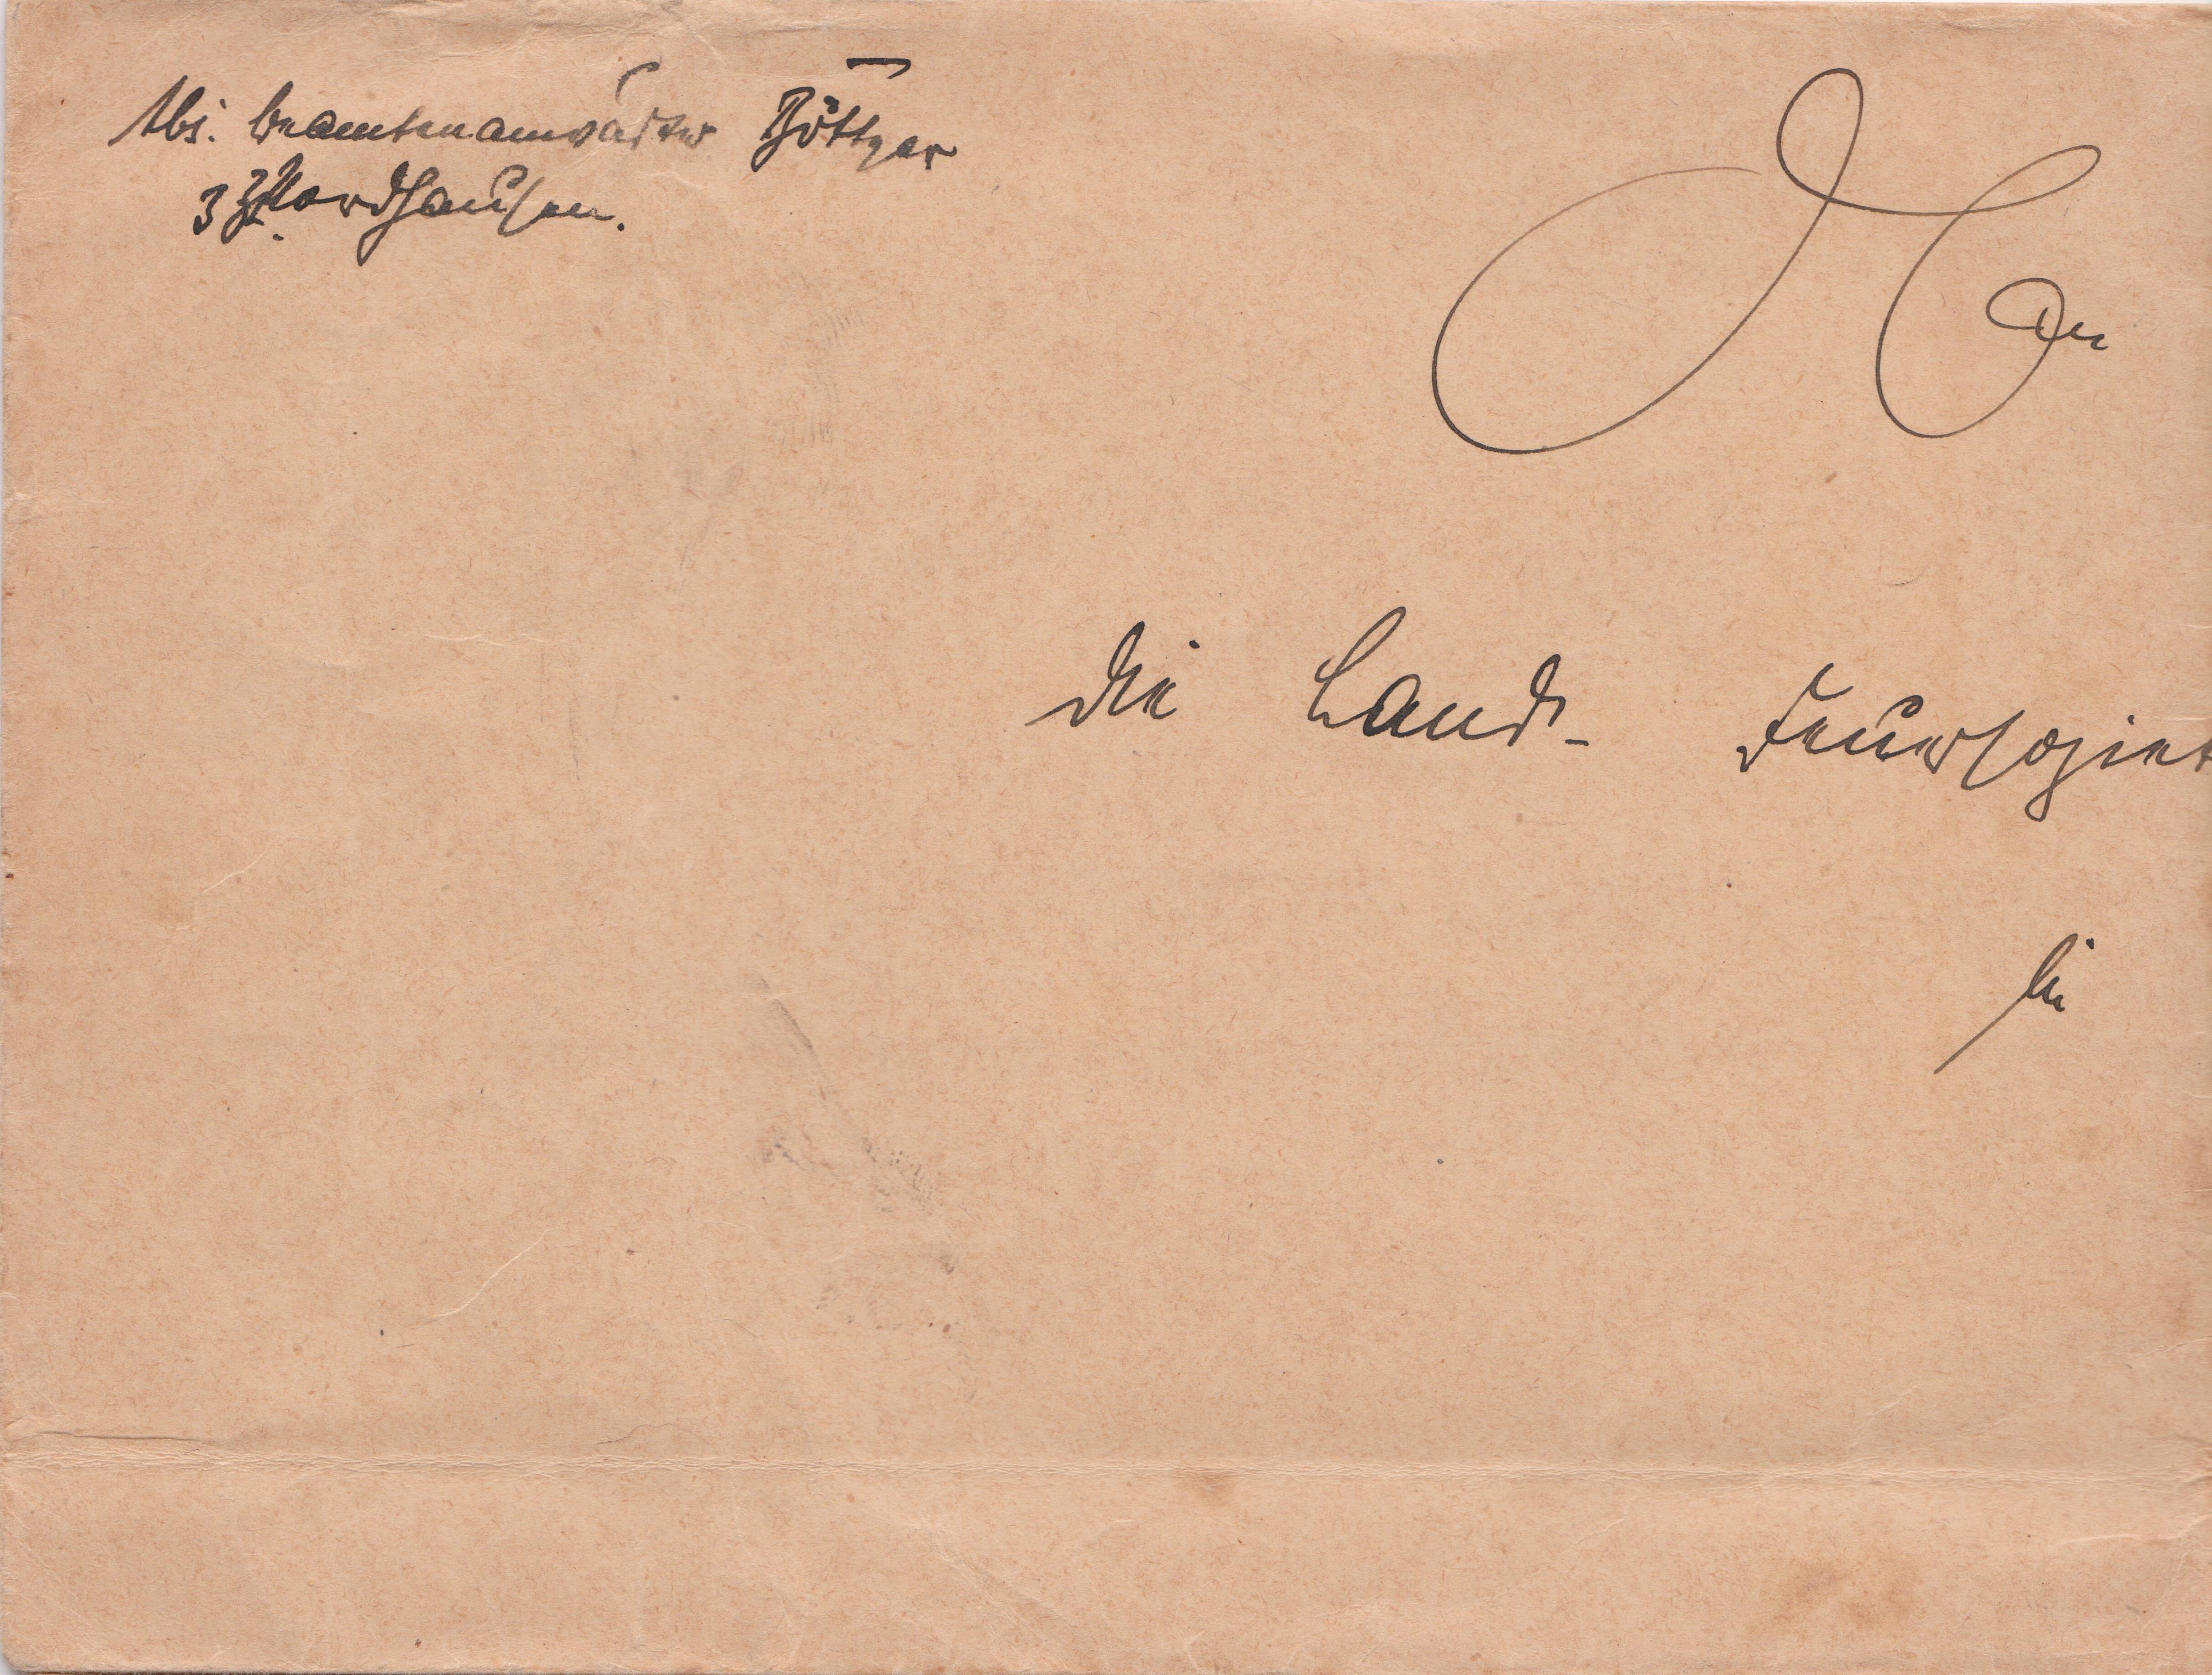 Abs. Beamtenanwärter Böttger
z. Zt. Nordhausen.
An
die Land- Feuersoziet
in